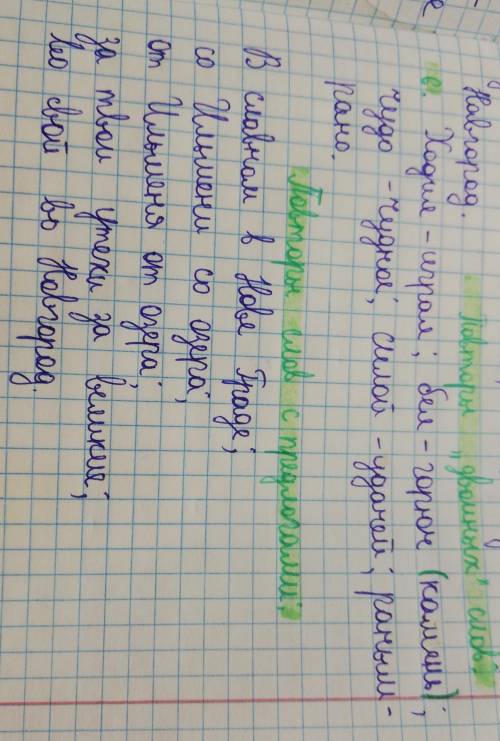 Новгород.
Повторы „двойных" слов:
6. Ходил - играл; бел - горюч (камень);
чудо - чудное; силой - удачей; раным -
рано.
Повторы слов с предлогами:
В славном в Нове Граде;
со Ильмени со озера;
от Ильменя от озера;
за твои утехи за великие;
во свой во Новгород.